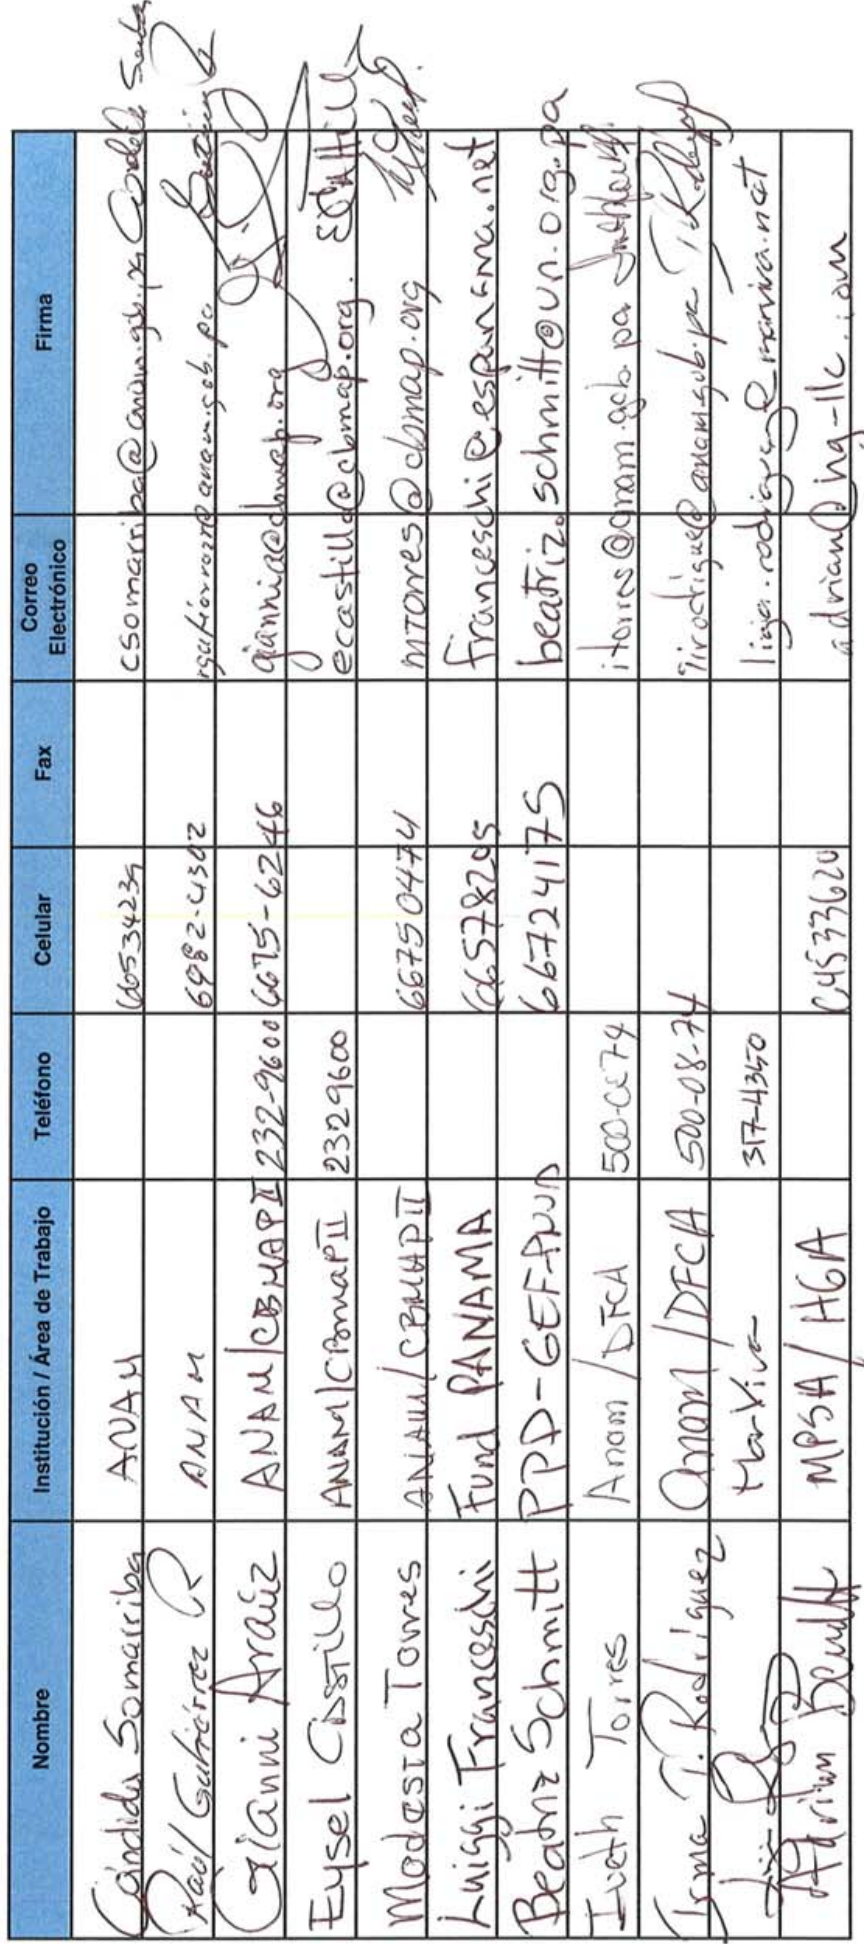 Nombre Institución / Área de Trabajo Teléfono Celular Fax Correo Electrónico Firma
Cándida Somarriba ANAM 66534234 csomarriba@anam.gob.pa
Raúl Gutiérrez R ANAM 6982-4302 rgutierrez@anam.gob.pa
Gianni Araúz ANAM/CBMAPII 232-9600 6675-6246 giannia@cbmap.org
Eysel Castillo ANAM/CBmapII 2329600 ecastillo@cbmap.org. ECastillo
Modesta Torres ANAM/CBMAPII 66750474 mTorres@cbmap.org
Luiggi Franceschi Fund PANAMA 66578205 franceschi@espanama.net
Beatriz Schmitt PPD-GEF-PNUD 66724175 beatriz.schmitt@un.org.pa
Iveth Torres Anam / DFCA 500-0874 itorres@anam.gob.pa
Irma T. Rodríguez anam / DFCA 500-08-74 tirodrigue@anam.gob.pa
MarViva 317-4350 ligia.rodriguez@marviva.net
Adrian Benedetti MPSA / HGA 64533620 adrian@hg-llc.com